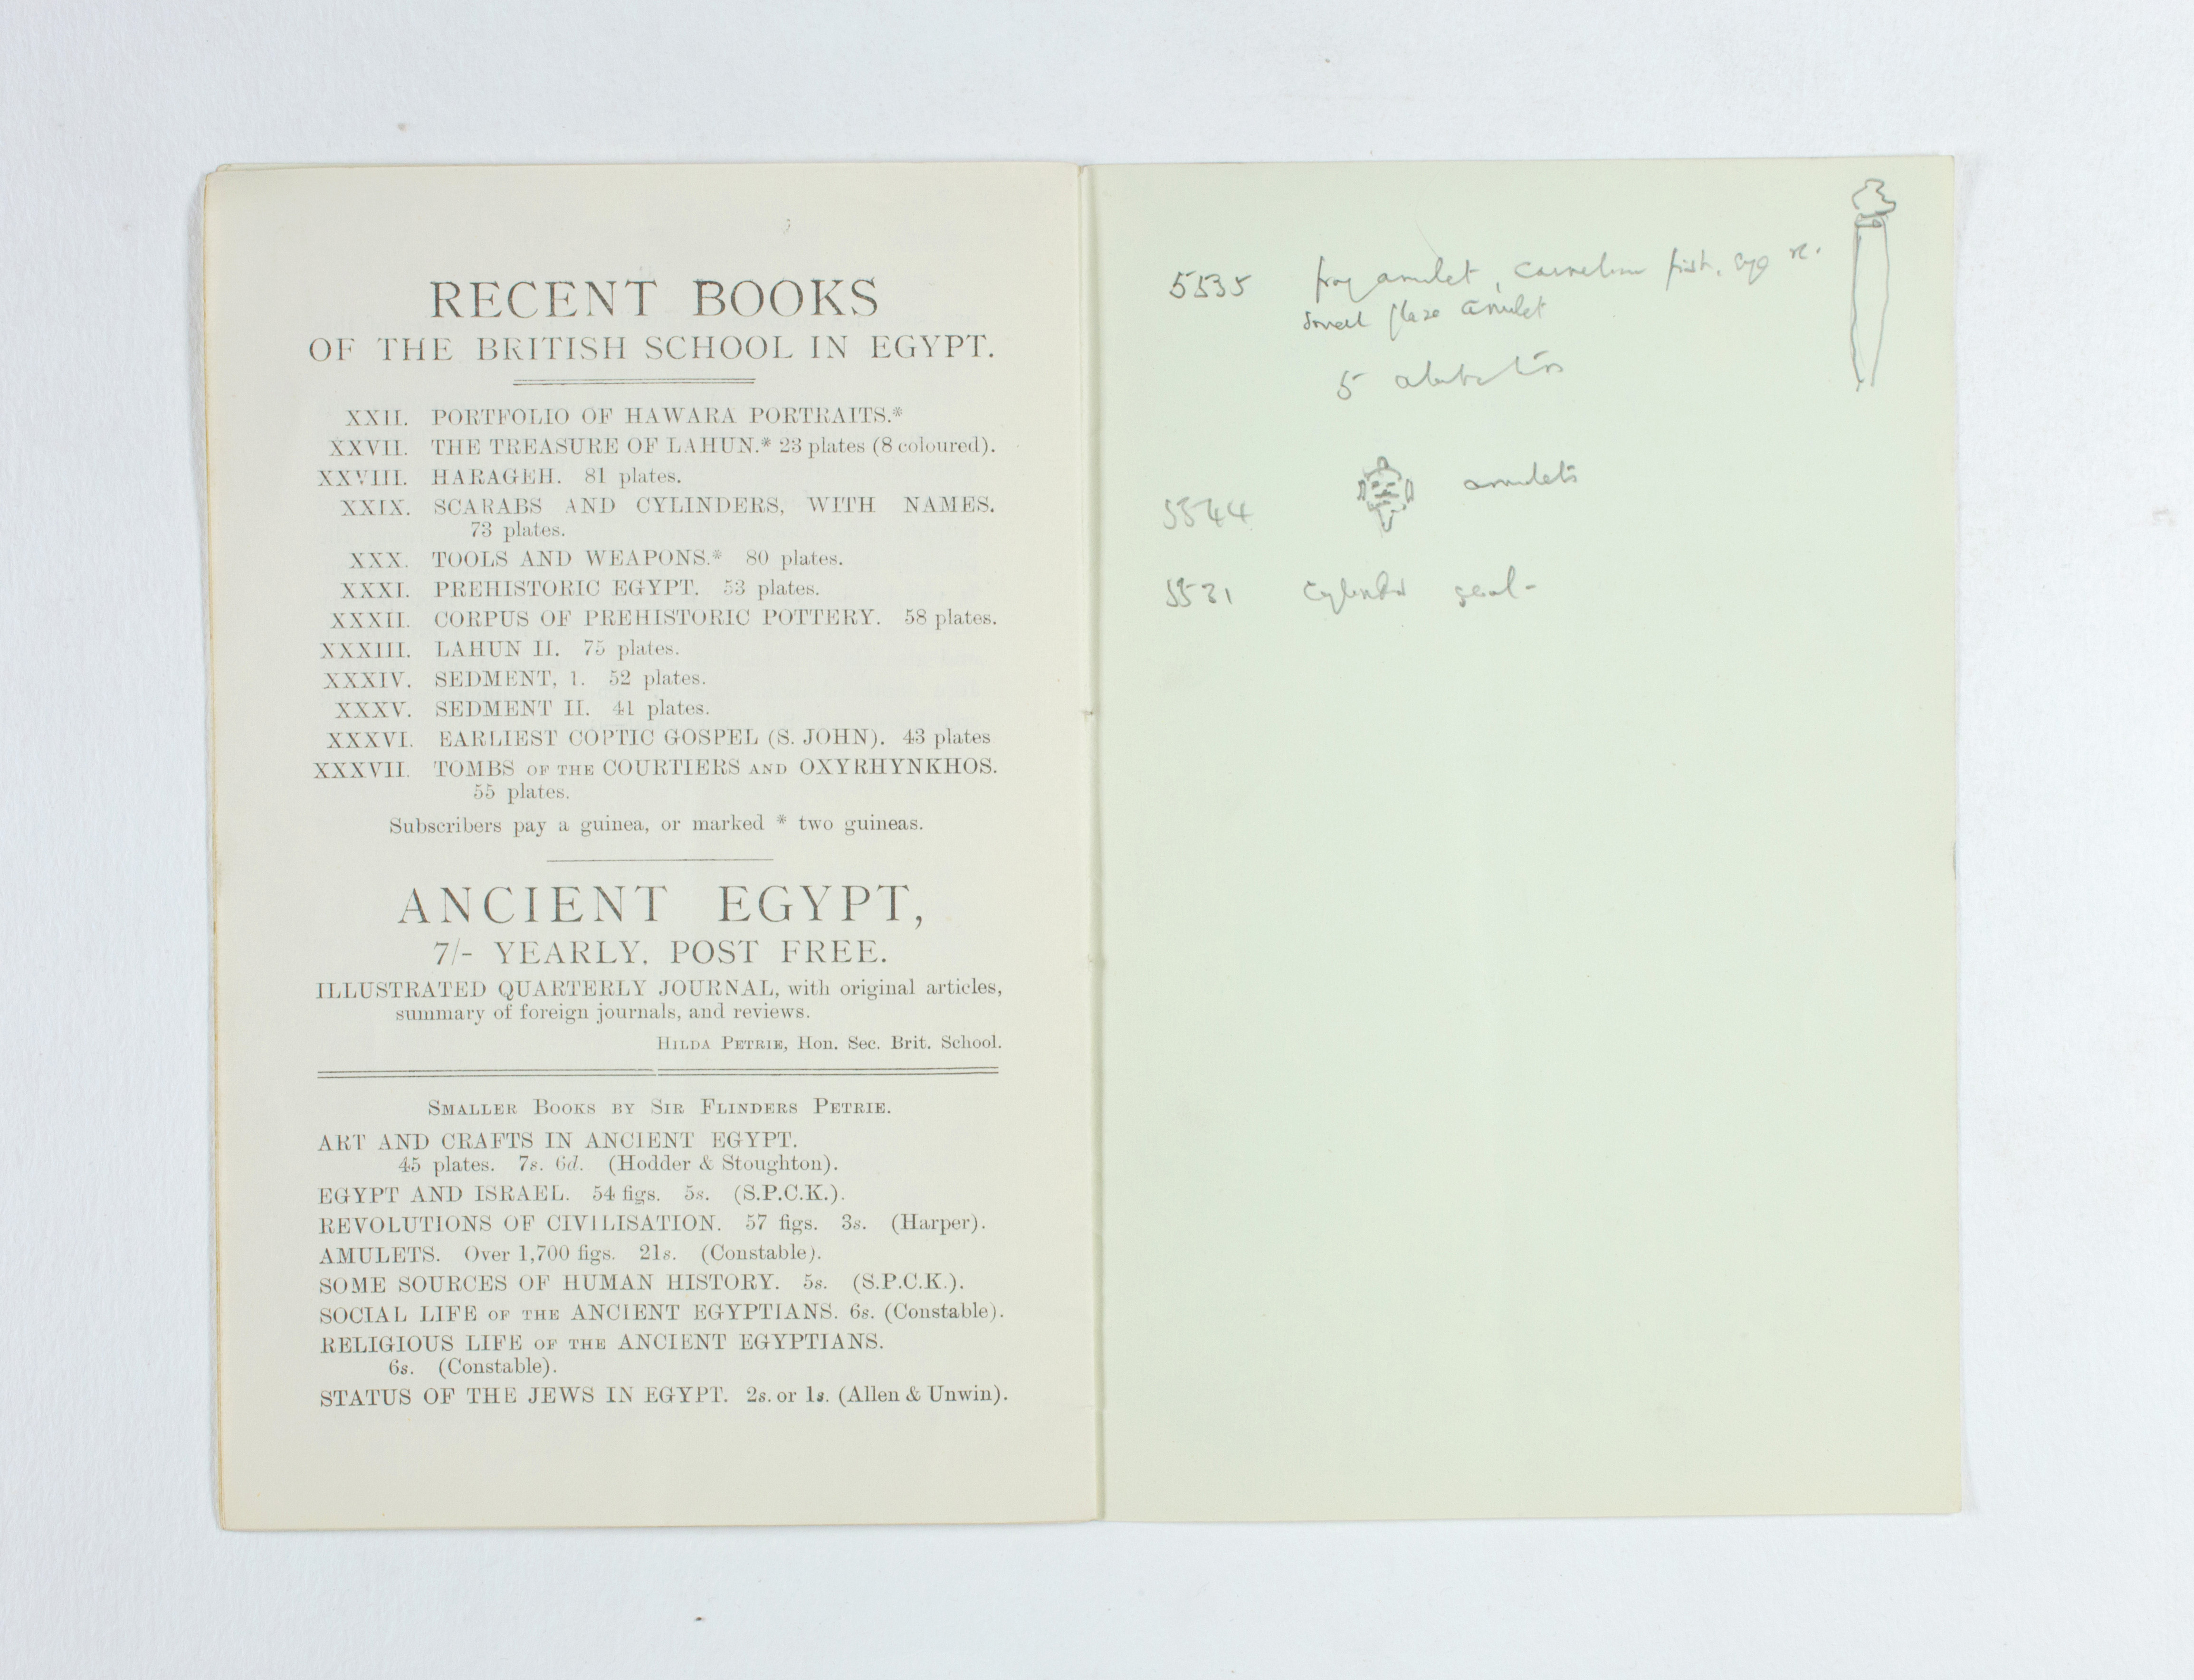 RECENT BOOKS
OF THE BRITISH SCHOOL IN EGYPT.
XXII. PORTFOLIO OF HAWARA PORTRAITS.*
XXVII. THE TREASURE OF LAHUN.* 23 plates (8 coloured).
XXVIII. HARAGEH. 81 plates.
XXIX. SCARABS AND CYLINDERS, WITH NAMES.
73 plates.
XXX. TOOLS AND WEAPONS.* 80 plates.
XXXI. PREHISTORIC EGYPT. 53 plates.
XXXII. CORPUS OF PREHISTORIC POTTERY. 58 plates.
XXXIII. LAHUN II. 75 plates.
XXXIV. SEDMENT, I. 52 plates.
XXXV. SEDMENT II. 41 plates.
XXXVI. EARLIEST COPTIC GOSPEL (S. JOHN). 43 plates
XXXVII. TOMBS OF THE COURTIERS AND OXYRHYNKHOS.
55 plates.
Subscribers pay a guinea, or marked * two guineas.
ANCIENT EGYPT,
7/- YEARLY. POST FREE.
ILLUSTRATED QUARTERLY JOURNAL, with original articles,
summary of foreign journals, and reviews.
HILDA PETRIE, Hon. Sec. Brit. School.
SMALLER BOOKS BY SIR FLINDERS PETRIE.
ART AND CRAFTS IN ANCIENT EGYPT.
45 plates. 7s. 6d. (Hodder & Stoughton).
EGYPT AND ISRAEL. 54 figs. 5s. (S.P.C.K.).
REVOLUTIONS OF CIVILISATION. 57 figs. 3s. (Harper).
AMULETS. Over 1,700 figs. 21s. (Constable).
SOME SOURCES OF HUMAN HISTORY. 5s. (S.P.C.K.).
SOCIAL LIFE OF THE ANCIENT EGYPTIANS. 6s. (Constable).
RELIGIOUS LIFE OF THE ANCIENT EGYPTIANS.
6s. (Constable).
STATUS OF THE JEWS IN EGYPT. 2s. or 1s. (Allen & Unwin).
5535 frog amulet, carnelian fish,
small glaze amulet
5
5544 amulets
5531 cylinder seal-